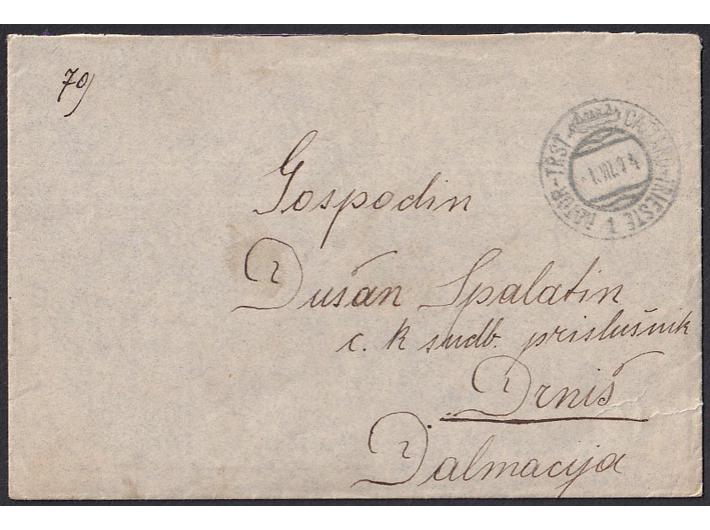 70
KOTOR-TRST CATTARO-TRIESTE 1
Gospodin
Dušan Spalatin
c. k sudb. prislušnik
Drniš
Dalmacija